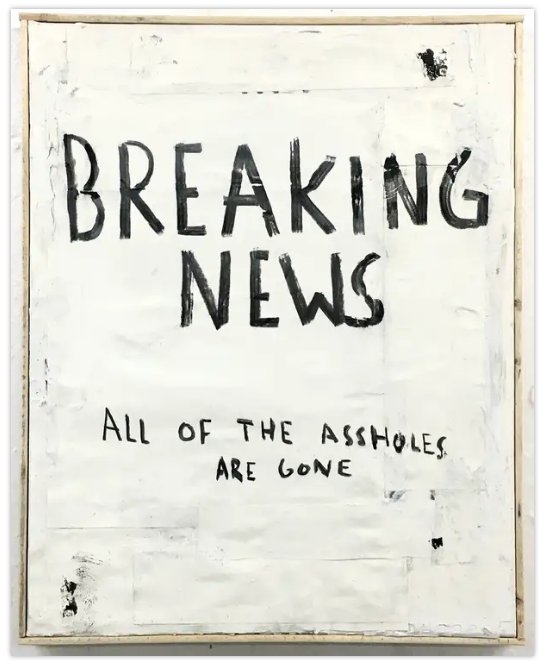 BREAKING
NEWS
ALL OF THE ASSHOLES
ARE GONE